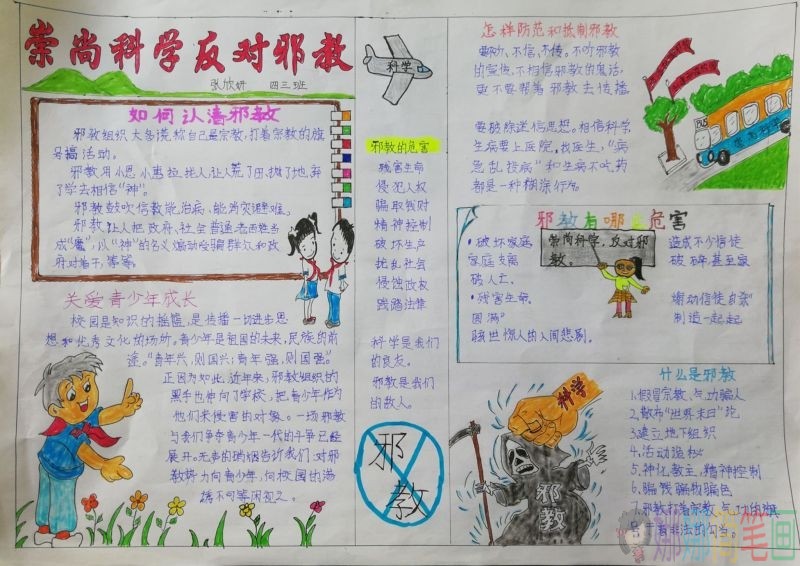 崇尚科学反对邪教
张欣妍 四三班
如何认清邪教
邪教组织大多谎称自己是宗教,打着宗教的旗
号搞活动。
邪教用小恩小惠拉拢人,让人荒了田,抛了地,弃
了学去相信“神”。
邪教鼓吹信教能治病、能消灾避难。
邪教让人把政府、社会普通老百姓当
成“魔”,以“神”的名义煽动受骗群众和政
府对着干,等等。
关爱青少年成长
校园是知识的摇篮,是传播一切进步思
想和优秀文化的场所。青少年是祖国的未来,民族的前
途。“青年兴,则国兴;青年强,则国强。”
正因为如此,近年来,邪教组织的
黑手也伸向了学校,把青少年作为
他们来侵害的对象。一场邪教
与我们争夺青少年一代的斗争已经
展开。无声的硝烟告诉我们:对邪
教将力向青少年,向校园的渗
透不可等闲视之。
科学
邪教的危害
残害生命
侵犯人权
骗取钱财
精神控制
破坏生产
扰乱社会
侵蚀政权
践踏法律
科学是我们
的良友。
邪教是我们
的敌人。
邪教
怎样防范和抵制邪教
要听、不信、不传。不听邪教
的宣传,不相信邪教的鬼话,
更不要帮着邪教去传播
要破除迷信思想。相信科学
生病要上医院,找医生,“病
急乱投病”和生病不吃药
都是一种糊涂行为。
BUS
崇尚科学
邪教有哪些危害
崇尚科学,反对邪
教。
·破坏家庭
家庭支离
破人亡.
·残害生命
圆满”
骇世惊人的人间悲剧。
造成不少信徒
破碎甚至家
煽动信徒自杀“
制造一起起
科学
邪教
什么是邪教
1.假冒宗教、气功骗人
2.散布“世界末日”论
3.建立地下组织
4.活动诡秘
5.神化教主,精神控制
6.骗钱骗物骗色
7.邪教打着宗教、气功的旗
号干着非法的勾当。